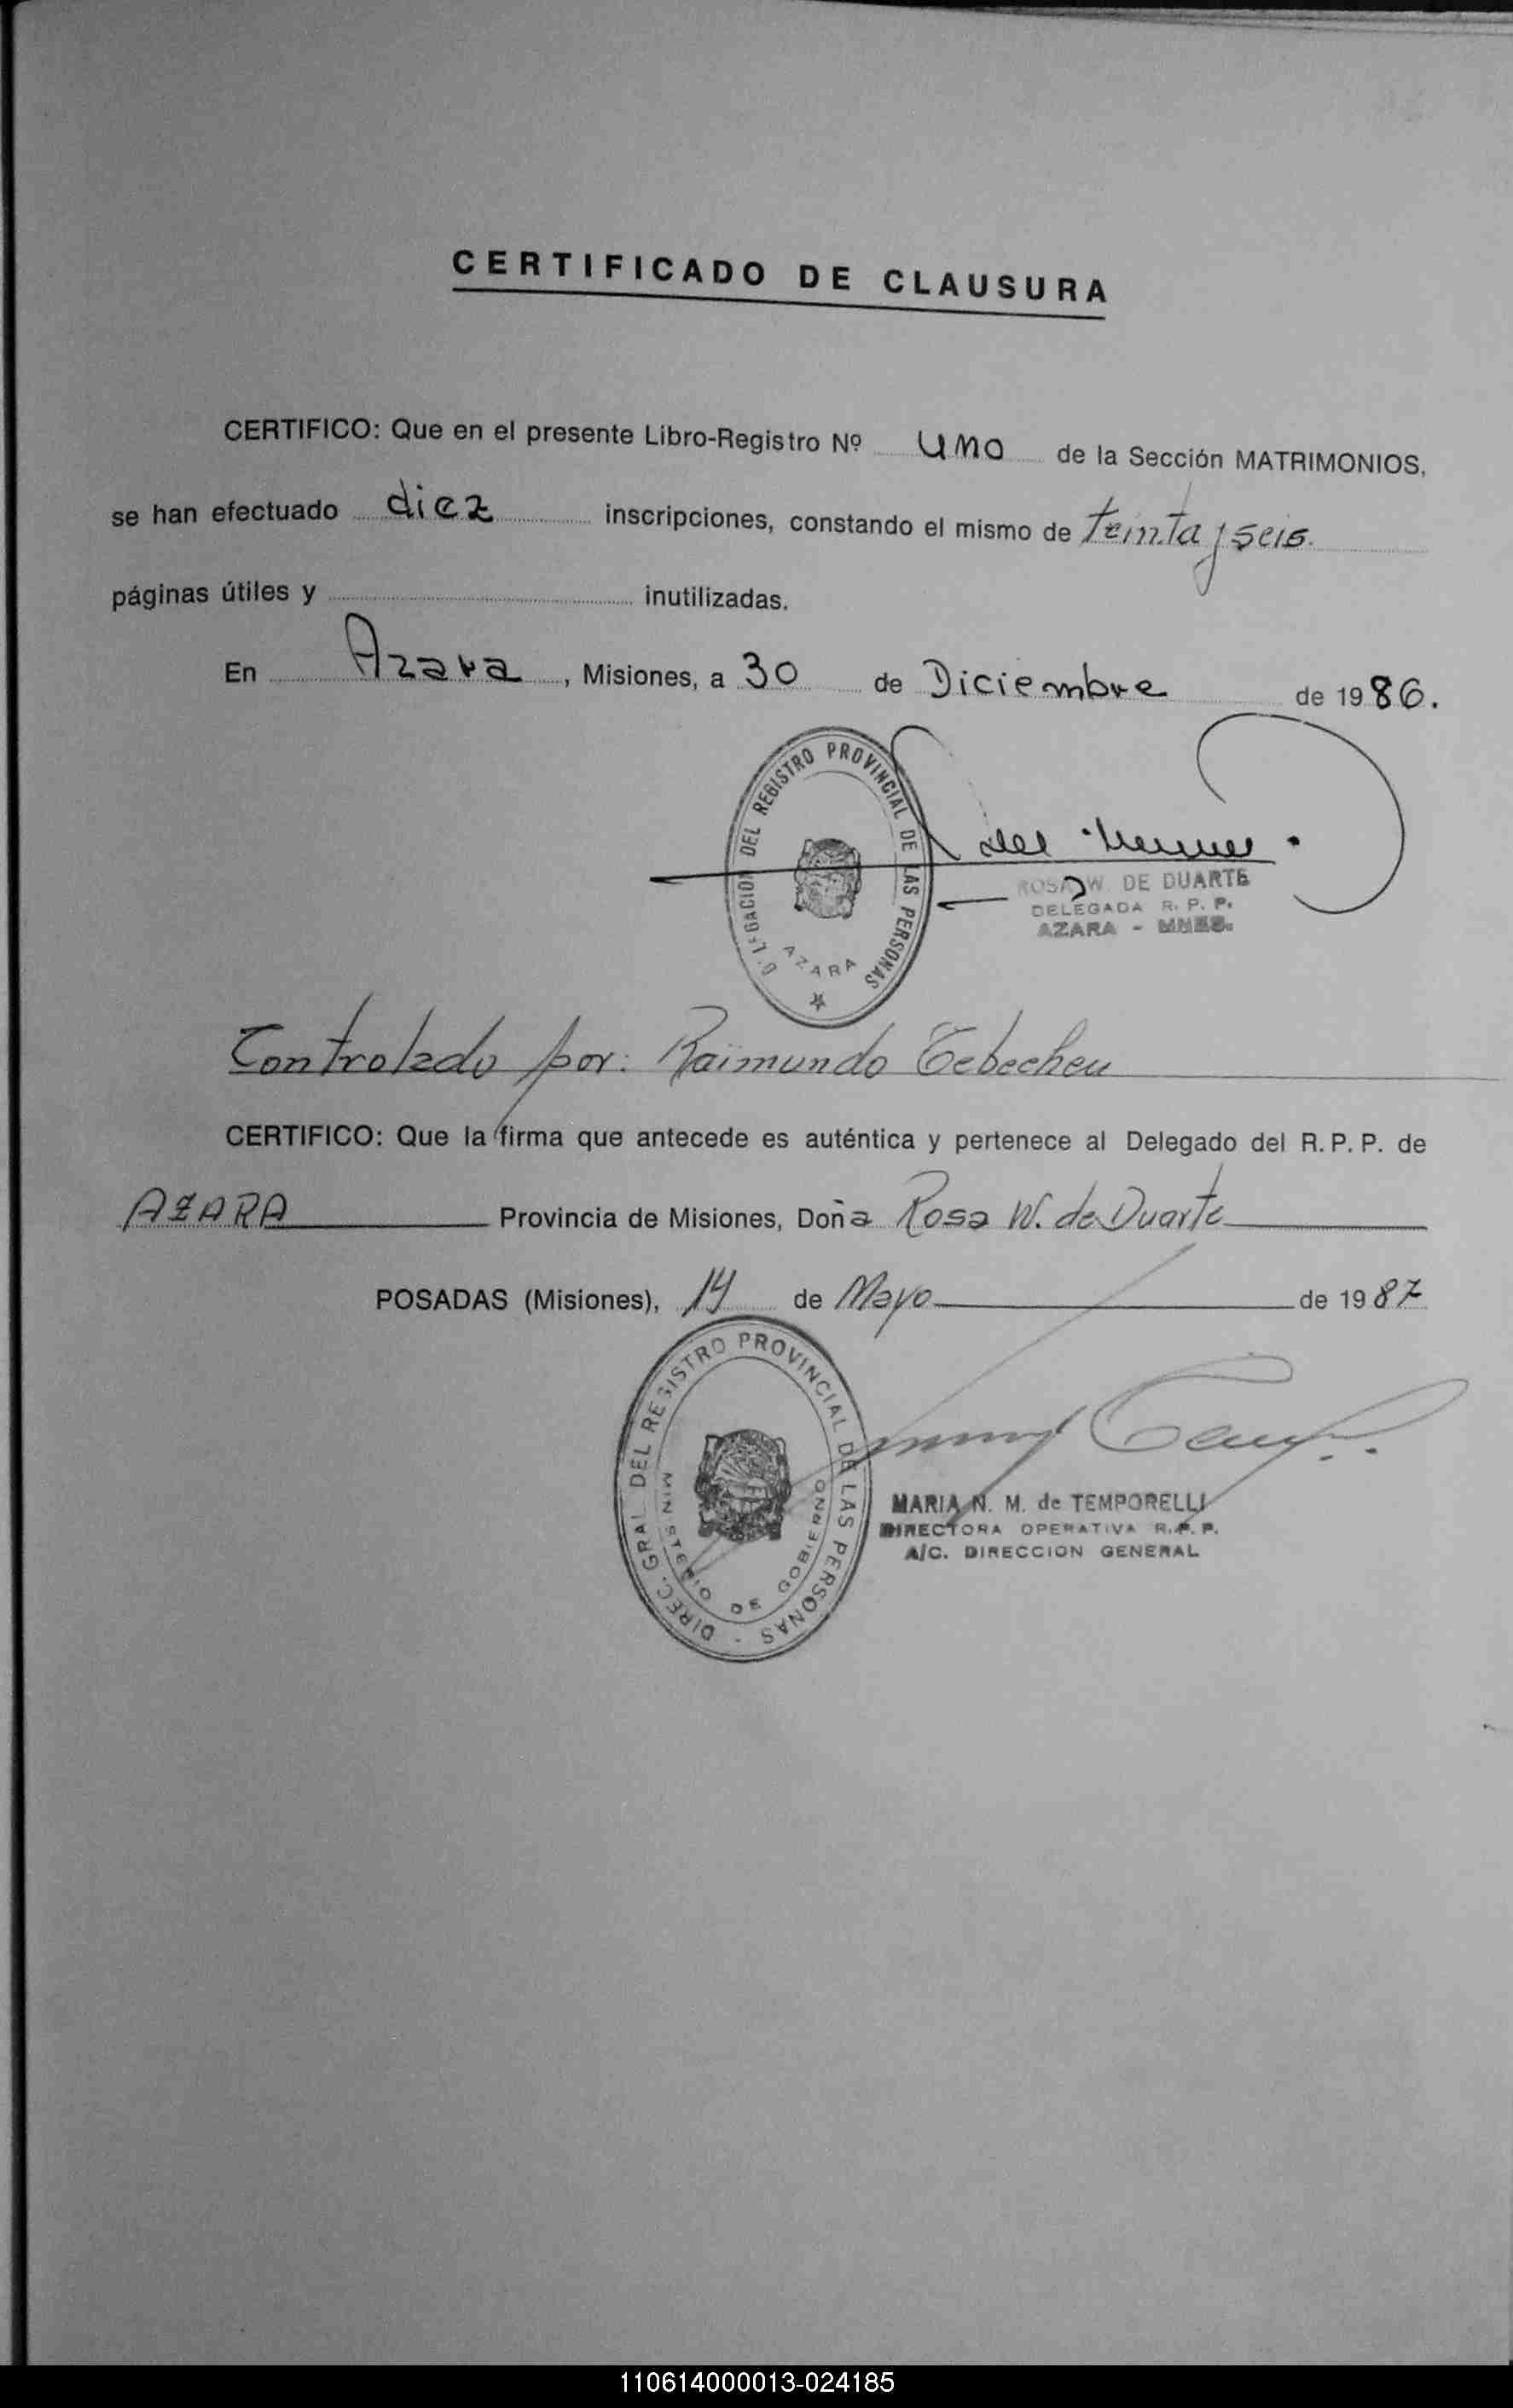 CERTIFICADO DE CLAUSURA
CERTIFICO: Que en el presente Libro-Registro Nº uno de la Sección MATRIMONIOS,
se han efectuado diez inscripciones, constando el mismo de treinta y seis.
páginas útiles y inutilizadas.
En Azara, Misiones, a 30 de Diciembre de 1986.
DELEGACION DEL REGISTRO PROVINCIAL DE LAS PERSONAS
AZARA
ROSA W. DE DUARTE
DELEGADA R. P. P.
AZARA - MNES.
Controlado por: Raimundo
CERTIFICO: Que la firma que antecede es auténtica y pertenece al Delegado del R. P. P. de
AZARA Provincia de Misiones, Doña Rosa W. de Duarte
POSADAS (Misiones), 14 de Mayo de 1987
DIREC. GRAL DEL REGISTRO PROVINCIAL DE LAS PERSONAS -
MINISTERIO DE GOBIERNO
MARIA N. M. de TEMPORELLI
DIRECTORA OPERATIVA R. P. P.
A/C. DIRECCION GENERAL
110614000013-024185